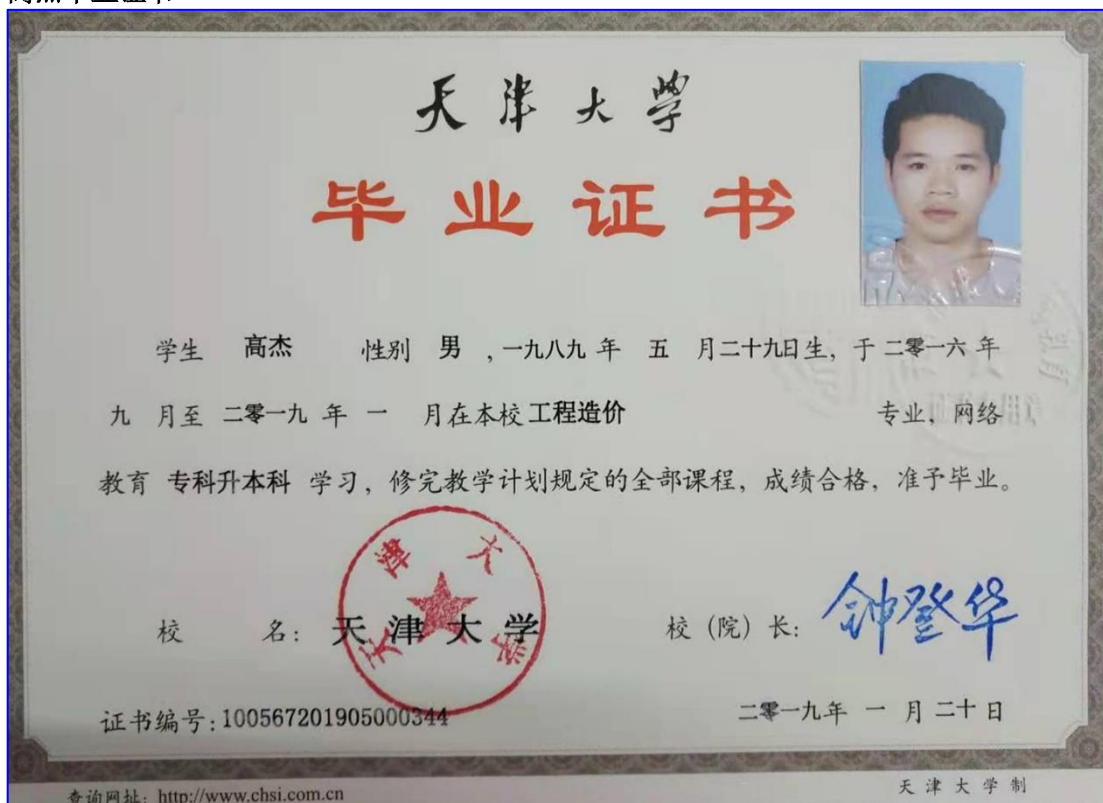 天津大學
毕业证书
学生 高杰 性别 男 ,一九八九 年 五 月二十九日生, 于 二零一六 年
九 月至 二零一九 年 一 月在本校 工程造价 专业, 网络
教育 专科升本科 学习, 修完教学计划规定的全部课程, 成绩合格, 准予毕业。
天津大学
校 名: 天津大学 校 (院) 长: 钟登华
证书编号:100567201905000344 二零一九年 一 月 二十 日
查询网址: http://www.chsi.com.cn 天津大学制